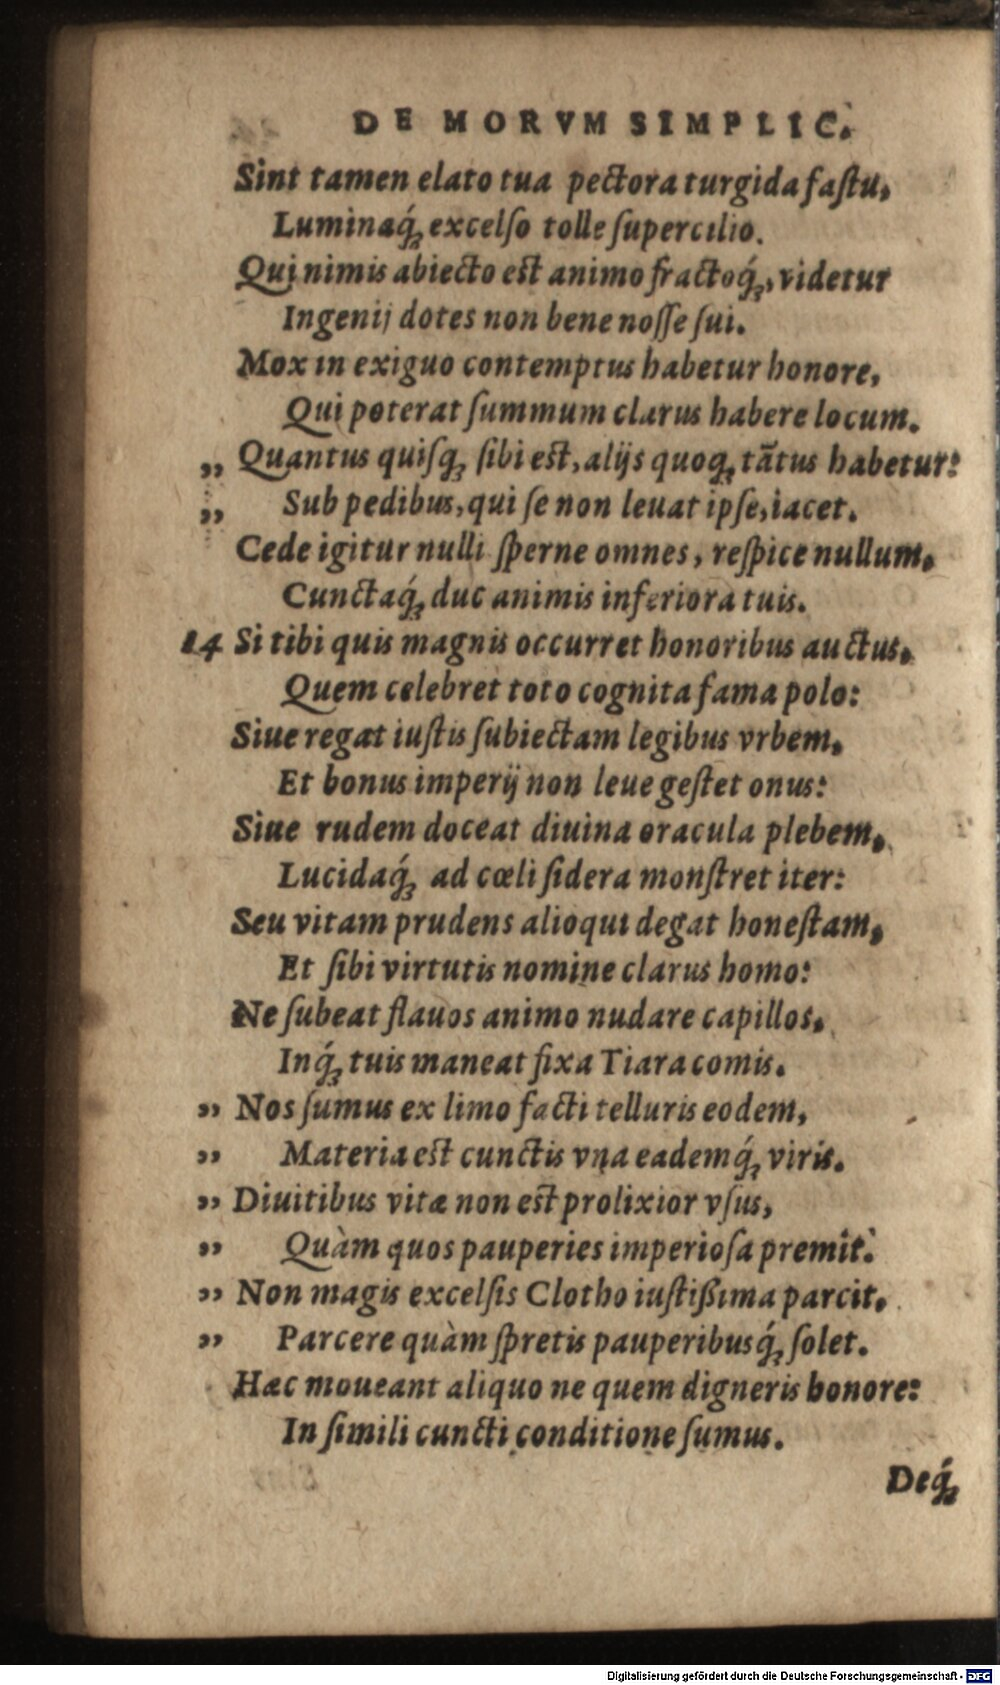 DE MORVM SIMPLIC.
Sint tamen elato tua pectora turgida faſtu,
Luminaq́; excelſo tolle ſupercilio.
Qui nimis abiecto est animo fractoq́;, videtur
Ingenij dotes non bene noſſe ſui.
Mox in exiguo contemptus habetur honore,
Qui poterat ſummum clarus habere locum.
„ Quantus quiſq; ſibi est, alijs quoq; tātus habetur:
„ Sub pedibus, qui ſe non leuat ipſe, iacet.
Cede igitur nulli ſperne omnes, reſpice nullum,
Cunctaq́; duc animis inferiora tuis.
14 Si tibi quis magnis occurret honoribus auctus,
Quem celebret toto cognita fama polo:
Siue regat iuſtis ſubiectam legibus vrbem,
Et bonus imperij non leue geſtet onus:
Siue rudem doceat diuina oracula plebem,
Lucidaq́; ad cœli ſidera monſtret iter:
Seu vitam prudens alioqui degat honeſtam,
Et ſibi virtutis nomine clarus homo:
Ne ſubeat flauos animo nudare capillos,
Inq́; tuis maneat fixa Tiara comis.
„ Nos ſumus ex limo facti telluris eodem,
„ Materia est cunctis vna eademq́; viris.
„ Diuitibus vitæ non est prolixior vſus,
„ Quàm quos pauperies imperioſa premit.
„ Non magis excelſis Clotho iuſtißima parcit,
„ Parcere quàm ſpretis pauperibusq́; ſolet.
Hæc moueant aliquo ne quem digneris honore:
In ſimili cuncti conditione ſumus.
Deq́;
Digitalisierung gefördert durch die Deutsche Forschungsgemeinschaft - DFG